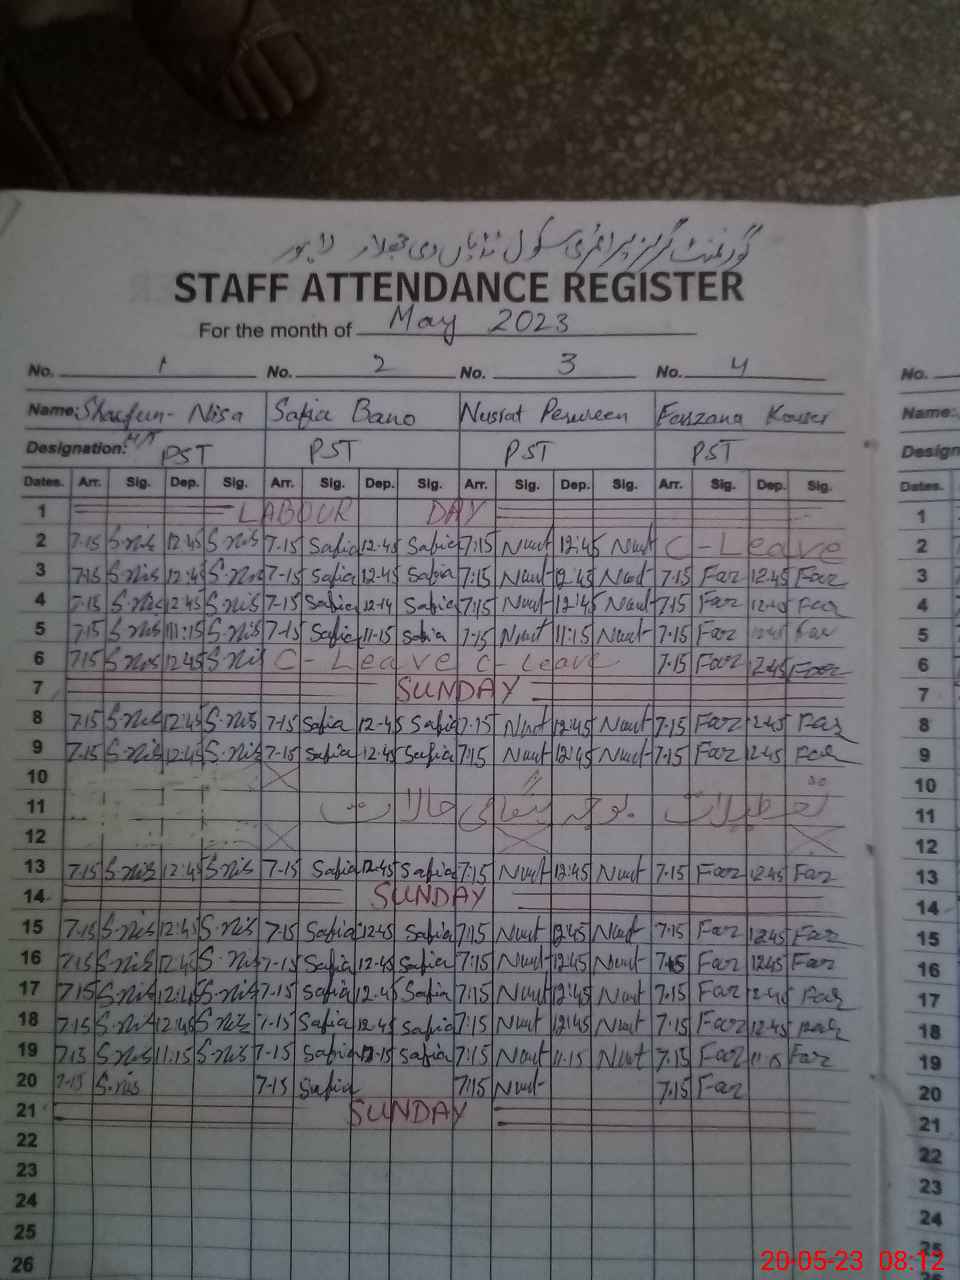 گورنمنٹ گرلز پرائمری سکول لاہور
STAFF ATTENDANCE REGISTER
For the month of May 2023
No. 1 No. 2 No. 3 No. 4 No.
Name: Nisa Safia Bano Nusrat Perveen Farzana Kouser Name:
Designation: PST PST PST PST Design
Dates. Arr. Sig. Dep. Sig. Arr. Sig. Dep. Sig. Arr. Sig. Dep. Sig. Arr. Sig. Dep. Sig. Dates.
1 LABOUR DAY 1
2 7-15 S.nis 12:45 S.nis 7-15 Safia 12-45 Safia 7:15 Nust 12:45 Nust C-Leave 2
3 7-15 S.nis 12:45 S.nis 7-15 Safia 12-45 Safia 7:15 Nust 12:45 Nust 7.15 Far 12.45 Far 3
4 7-15 S.nis 12:45 S.nis 7-15 Safia 12-14 Safia 7:15 Nust 12:45 Nust 7.15 Far Far 4
5 7-15 S.nis 11:15 S.nis 7-15 Safia 11-15 Safia 7-15 Nust 11:15 Nust 7.15 Far Far 5
6 7-15 S.nis 12:45 S.nis C-Leave C-Leave 7.15 Far 12.45 Far 6
7 SUNDAY 7
8 7-15 S.nis 12:45 S.nis 7-15 Safia 12-45 Safia 7-15 Nust 12:45 Nust 7.15 Far 12.45 Far 8
9 7-15 S.nis 12:45 S.nis 7-15 Safia 12-45 Safia 7:15 Nust 12:45 Nust 7.15 Far 12.45 Far 9
10 10
11 تعطیلات بوجہ ہنگامی حالات 11
12 12
13 7-15 S.nis 12:45 S.nis 7-15 Safia 12-45 Safia 7:15 Nust 12:45 Nust 7.15 Far 12.45 Far 13
14 SUNDAY 14
15 7-15 S.nis 12:45 S.nis 7-15 Safia 12-45 Safia 7:15 Nust 12:45 Nust 7.15 Far 12.45 Far 15
16 7-15 S.nis 12:45 S.nis 7-15 Safia 12-45 Safia 7:15 Nust 12:45 Nust 7.15 Far 12.45 Far 16
17 7-15 S.nis 12:45 S.nis 7-15 Safia 12-45 Safia 7:15 Nust 12:45 Nust 7.15 Far 12.45 Far 17
18 7-15 S.nis 12:45 S.nis 7-15 Safia 12-45 Safia 7:15 Nust 12:45 Nust 7.15 Far 12.45 Far 18
19 7-15 S.nis 11:15 S.nis 7-15 Safia Safia 7:15 Nust 11.15 Nust 7.15 Far 11.15 Far 19
20 7-15 S.nis 7-15 Safia 7:15 Nust 7.15 Far 20
21 SUNDAY 21
22 22
23 23
24 24
25 25
26
20-05-23 08:12